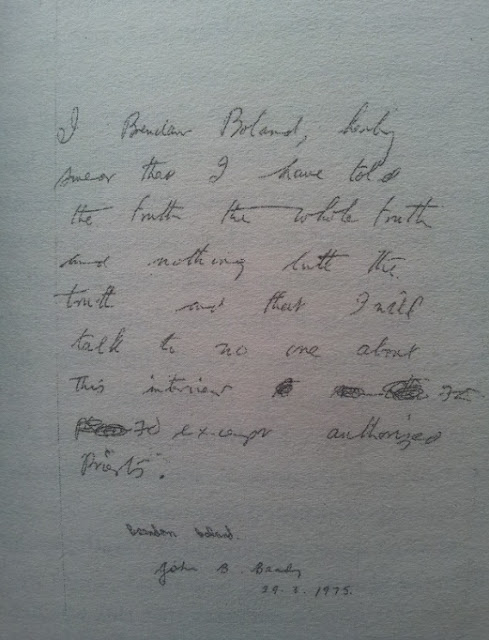 I Brendan Boland, hereby
swear that I have told
the truth the whole truth
and nothing butt the
truth and that I will
talk to no one about
this interview
except authorized
Priests.
Brendan Boland.
John B. Brady
29. 3. 1975.